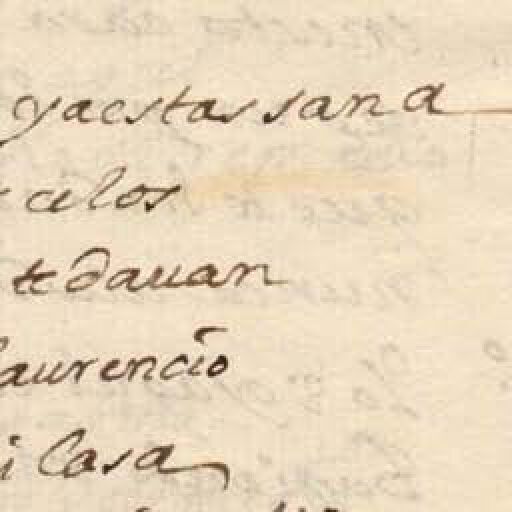 yaestas sana
celos
te davan
laurencio
i Casa